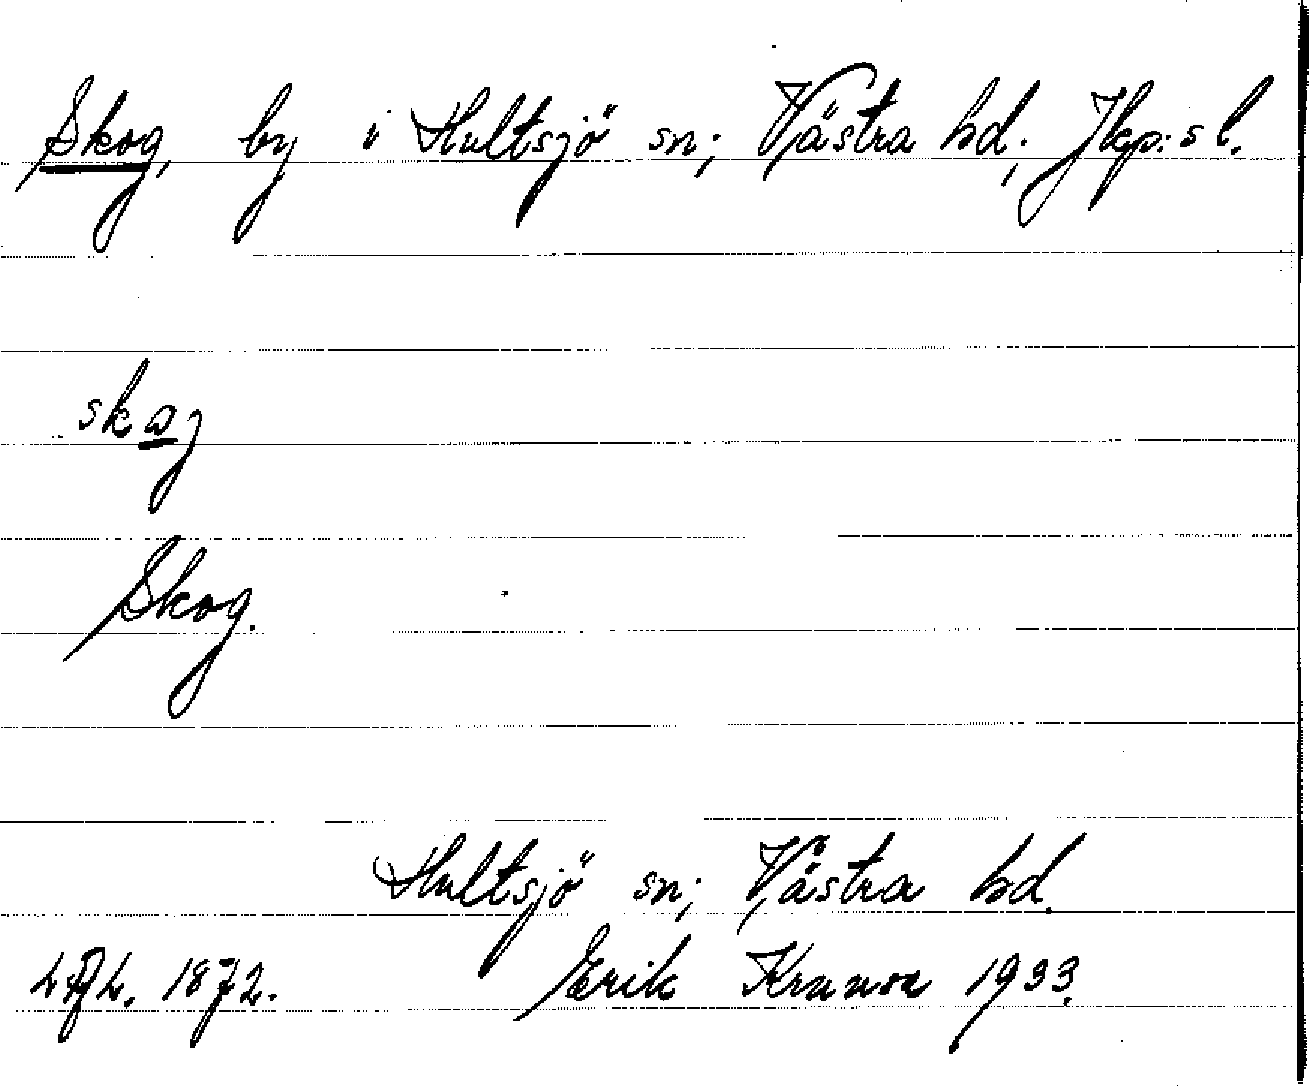 Skog, by i Hultsjö sn; Västra hd; Jkp:s l.
Skog.
Hultsjö sn; Västra hd.
1872. Erik 1933.